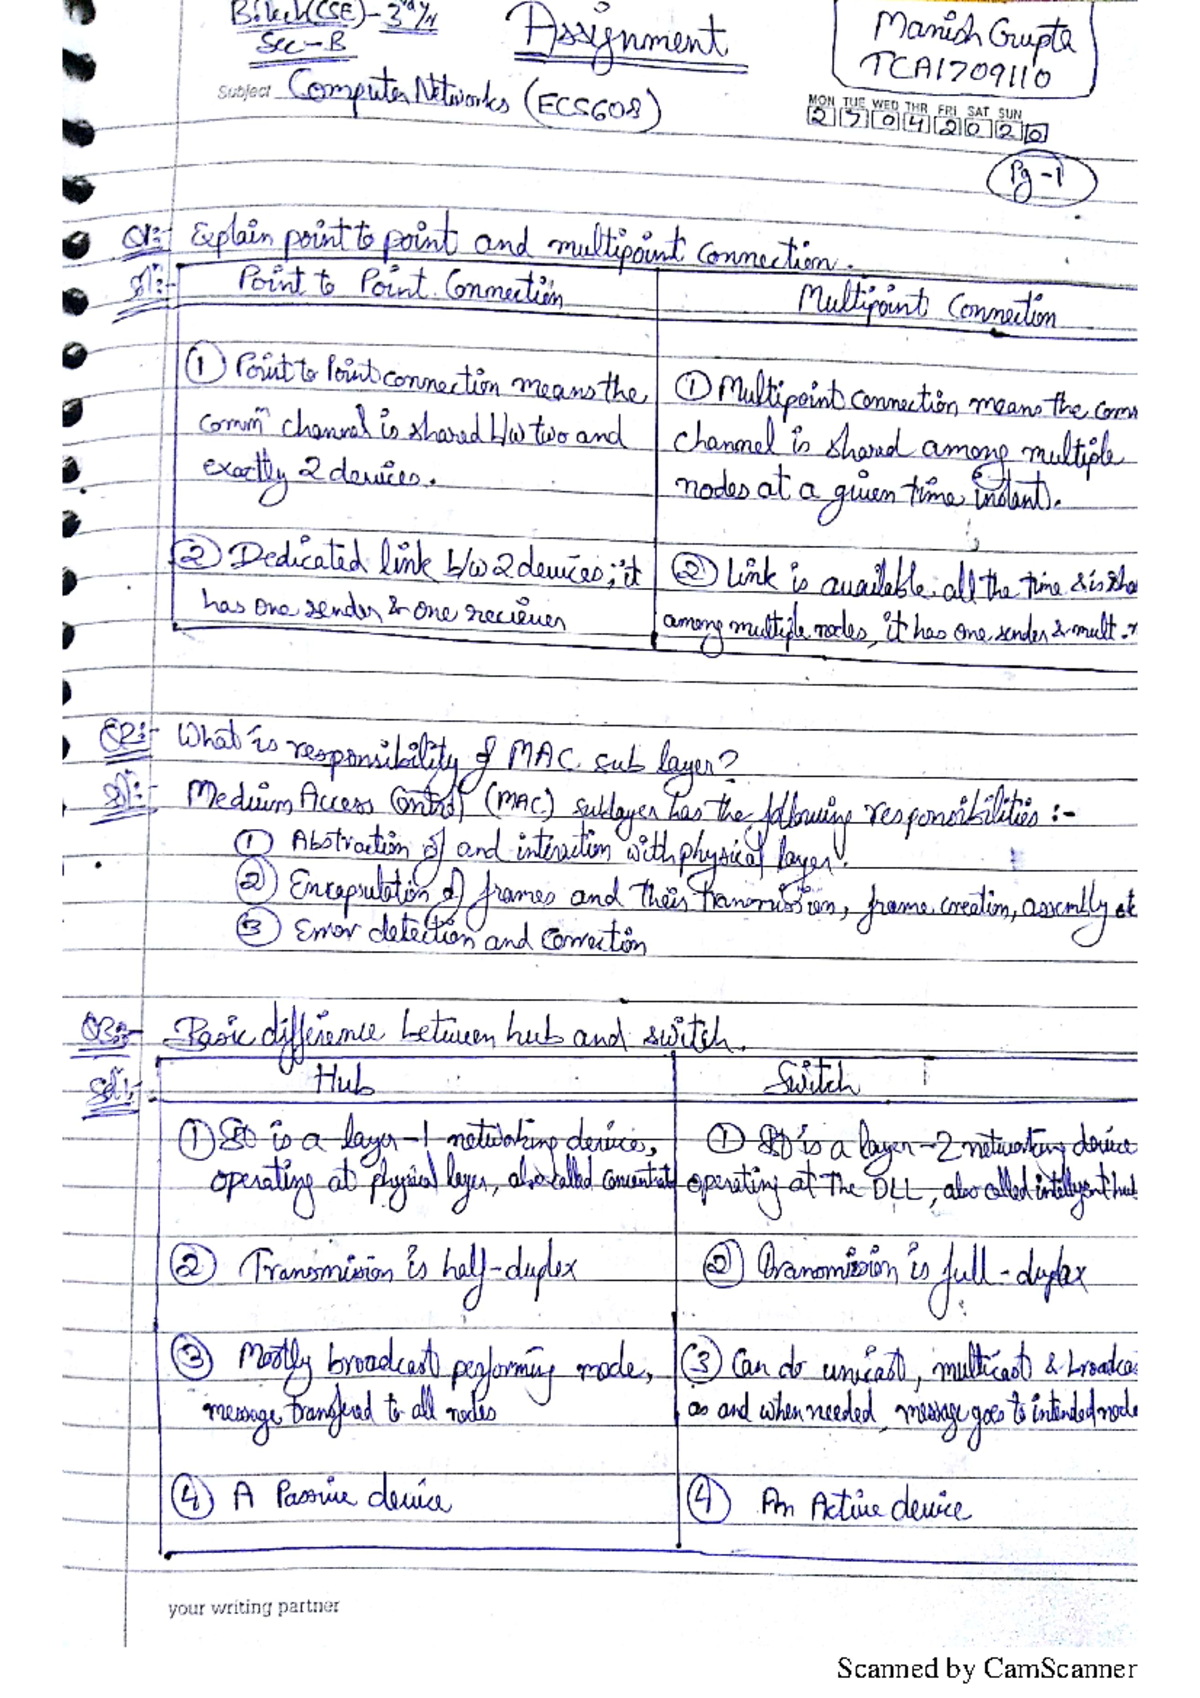 B.tech(CSE)-3rd Yr
Sec-B
Assignment
Manish Gupta
TCA1709110
Subject Computer Networks (ECS608)
MON TUE WED THR FRI SAT SUN
27042020
Pg-1
Q1:- Explain point to point and multipoint connection.
Sol:-
Point to Point Connection
Multipoint Connection
① Point to Point connection means the
commⁿ channel is shared b/w two and
exactly 2 devices.
① Multipoint connection means the comm
channel is shared among multiple
nodes at a given time instant.
② Dedicated link b/w 2 devices; it
has one sender & one reciever
② Link is available all the time & is sha
among multiple nodes, it has one sender & mult. r
Q2:- What is responsibility of MAC sub layer?
Sol:- Medium Access Control (MAC) sublayer has the following responsibilities :-
① Abstraction of and interaction with physical layer.
② Encapsulation of frames and their transmission, frame creation, assembly etc
③ Error detection and correction
Q3:- Basic difference between hub and switch.
Sol:-
Hub
Switch
① It is a layer-1 networking device,
operating at physical layer, also called concentrat
① It is a layer-2 networking device
operating at the DLL, also called intelligent hub
② Transmission is half-duplex
② Transmission is full-duplex
③ Mostly broadcast performing mode,
message transfered to all nodes
③ Can do unicast, multicast & broadca
as and when needed, message goes to intended node
④ A Passive device
④ An Active device
your writing partner
Scanned by CamScanner